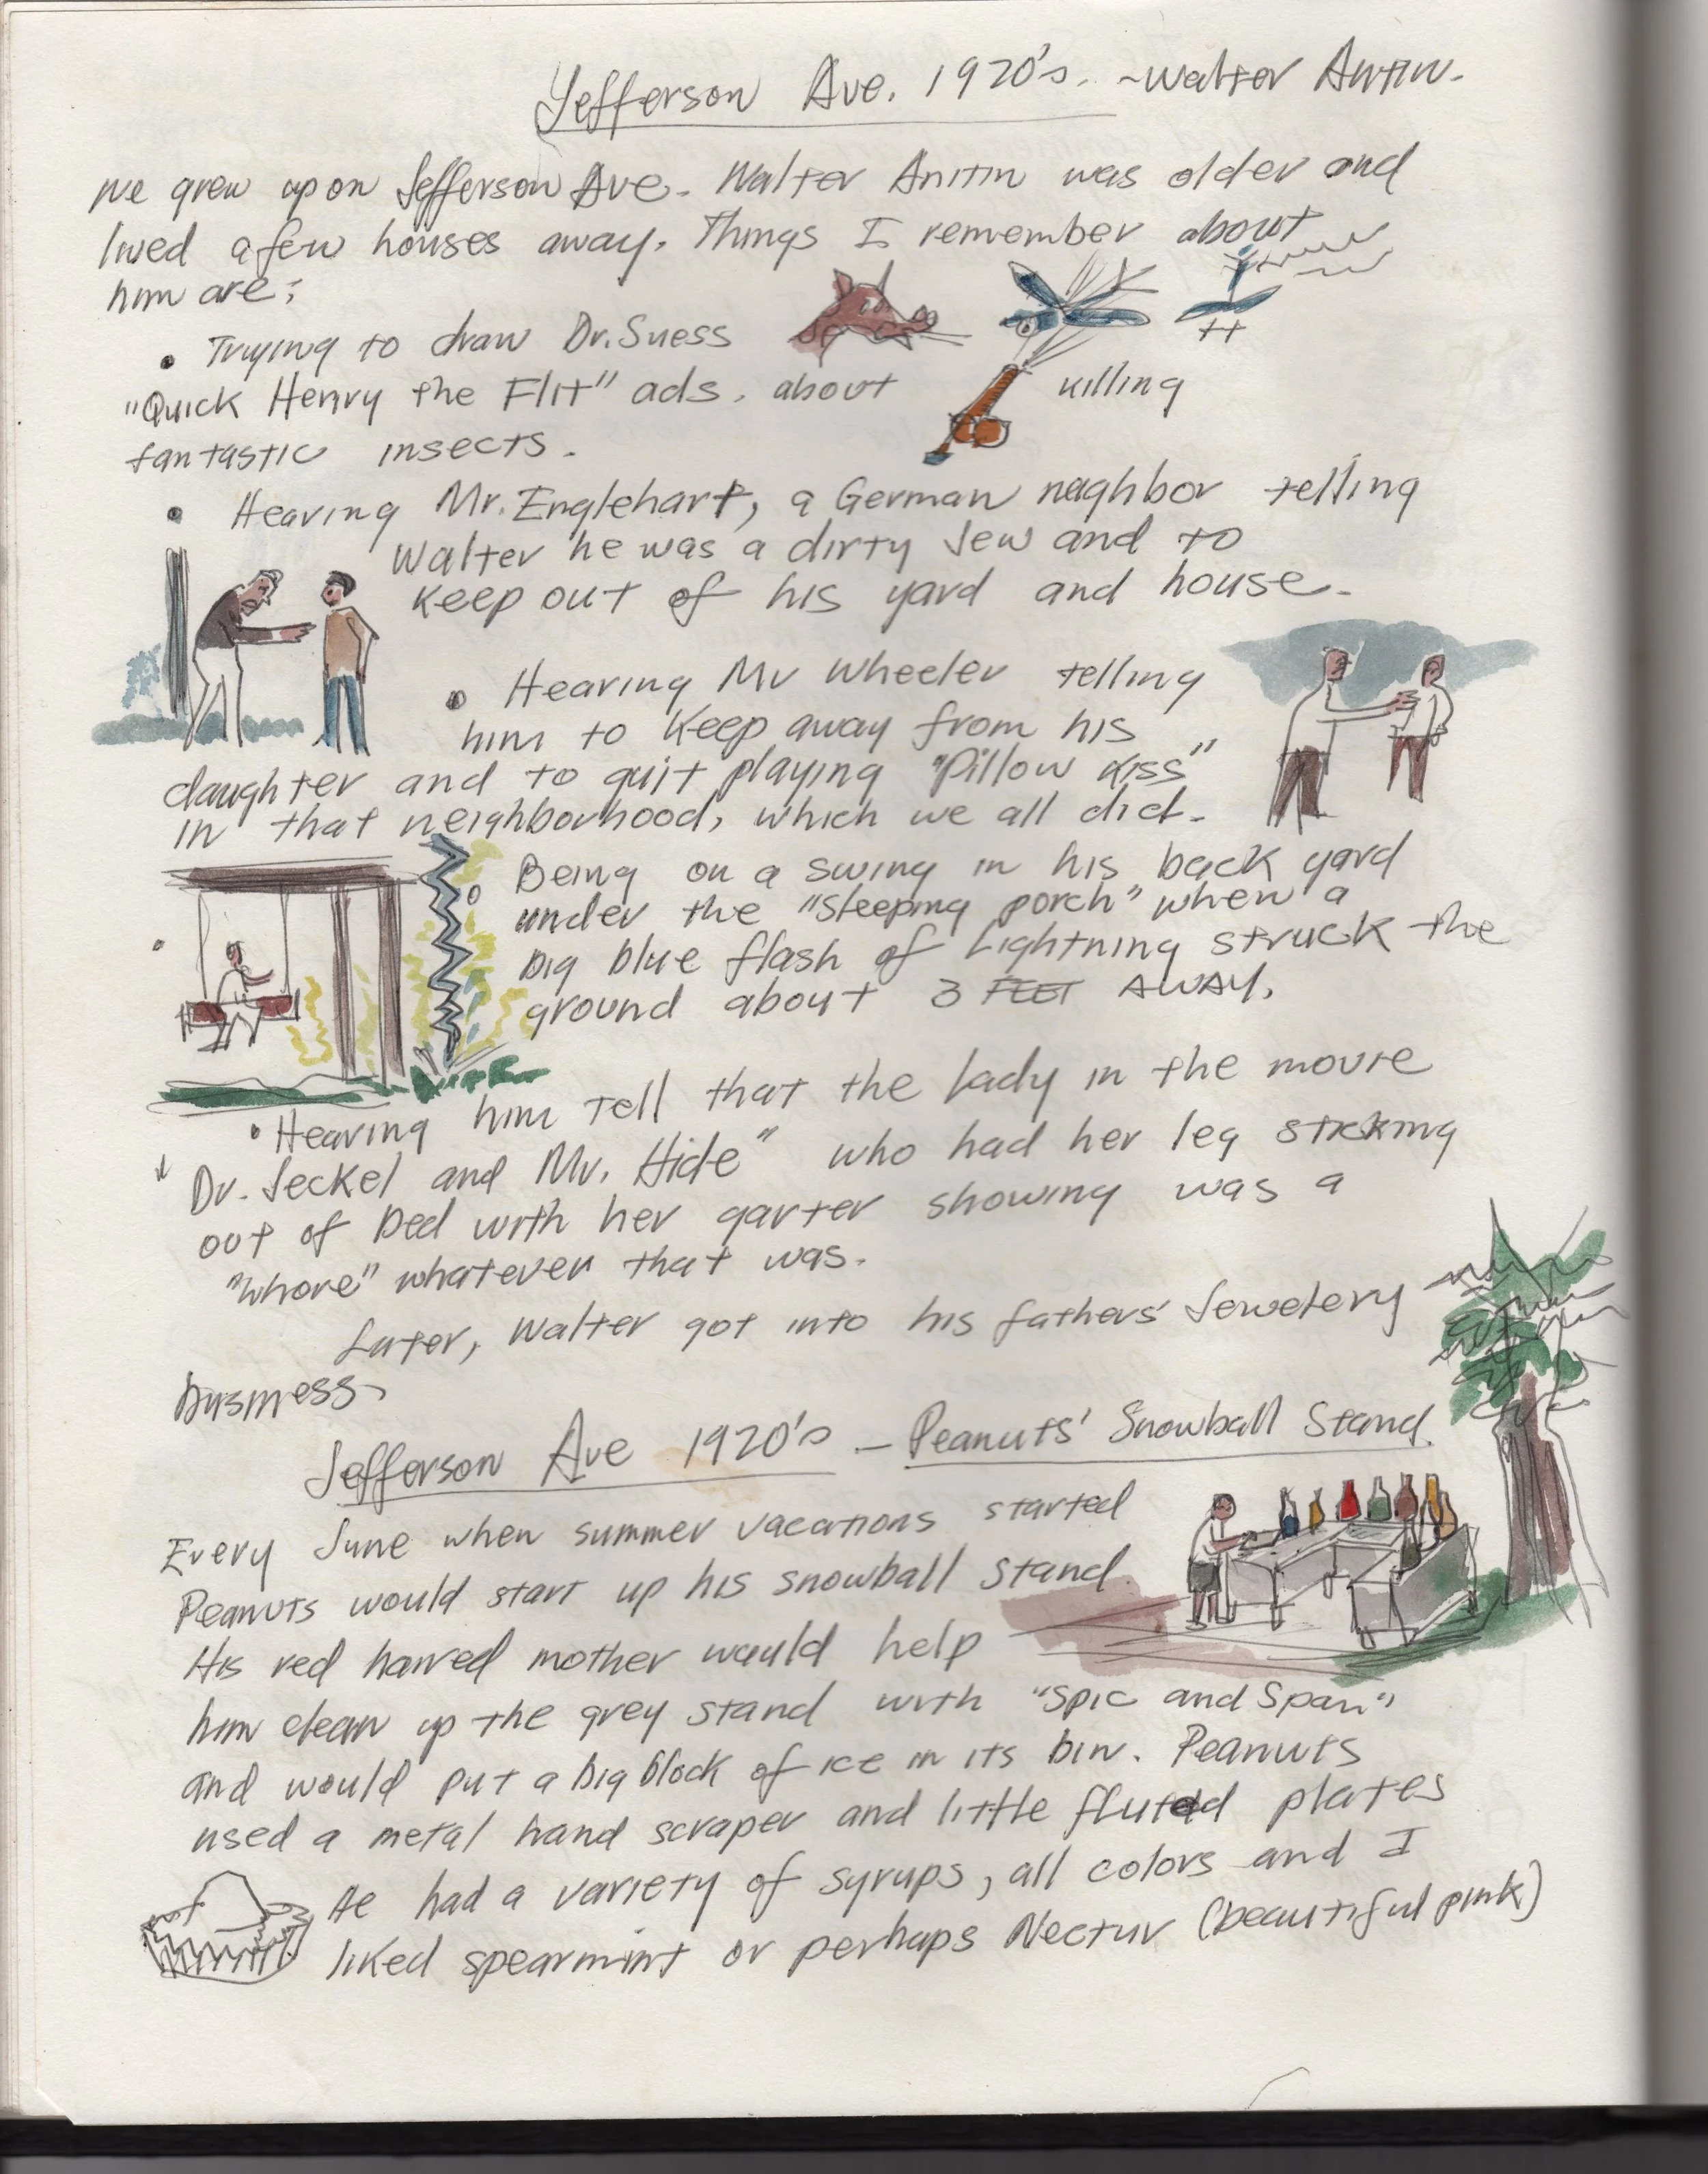 Jefferson Ave. 1920's. ~ Walter Antin.
We grew up on Jefferson Ave. Walter Anitin was older and
lived a few houses away. Things I remember about
him are:
• Trying to draw Dr. Suess
"Quick Henry the Flit" ads. about killing
fantastic insects.
• Hearing Mr. Englehart, a German neaghbor telling
Walter he was a dirty Jew and to
keep out of his yard and house.
• Hearing Mr Wheeler telling
him to keep away from his
daughter and to quit playing "Pillow Kiss"
in that neighborhood, which we all did.
Being on a swing in his back yard
under the "sleeping porch" when a
big blue flash of lightning struck the
ground about 3 FEET AWAY.
• Hearing him tell that the lady in the movie
Dr. Jeckel and Mr. Hide" who had her leg sticking
out of bed with her garter showing was a
"whore" whatever that was.
Later, Walter got into his fathers' Jewelery
business.
Jefferson Ave 1920's - Peanuts' Snowball Stand.
Every June when summer vacations started
Peanuts would start up his snowball stand.
His red haired mother would help
him clean up the grey stand with "Spic and Span"
and would put a big block of ice in its bin. Peanuts
used a metal hand scraper and little fluted plates
He had a variety of syrups, all colors and I
liked spearmint or perhaps Nectur (beautiful pink)